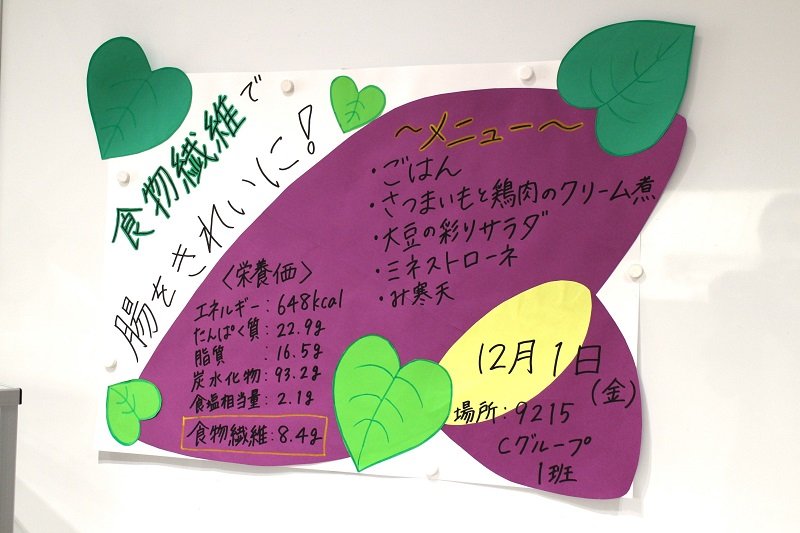 食物繊維で
腸をきれいに!
〜メニュー〜
・ごはん
・さつまいもと鶏肉のクリーム煮
・大豆の彩りサラダ
・ミネストローネ
・み寒天
〈栄養価〉
エネルギー:648kcal
たんぱく質:22.9g
脂質:16.5g
炭水化物:93.2g
食塩相当量:2.1g
食物繊維:8.4g
12月1日
(金)
場所:9215
Cグループ
1班